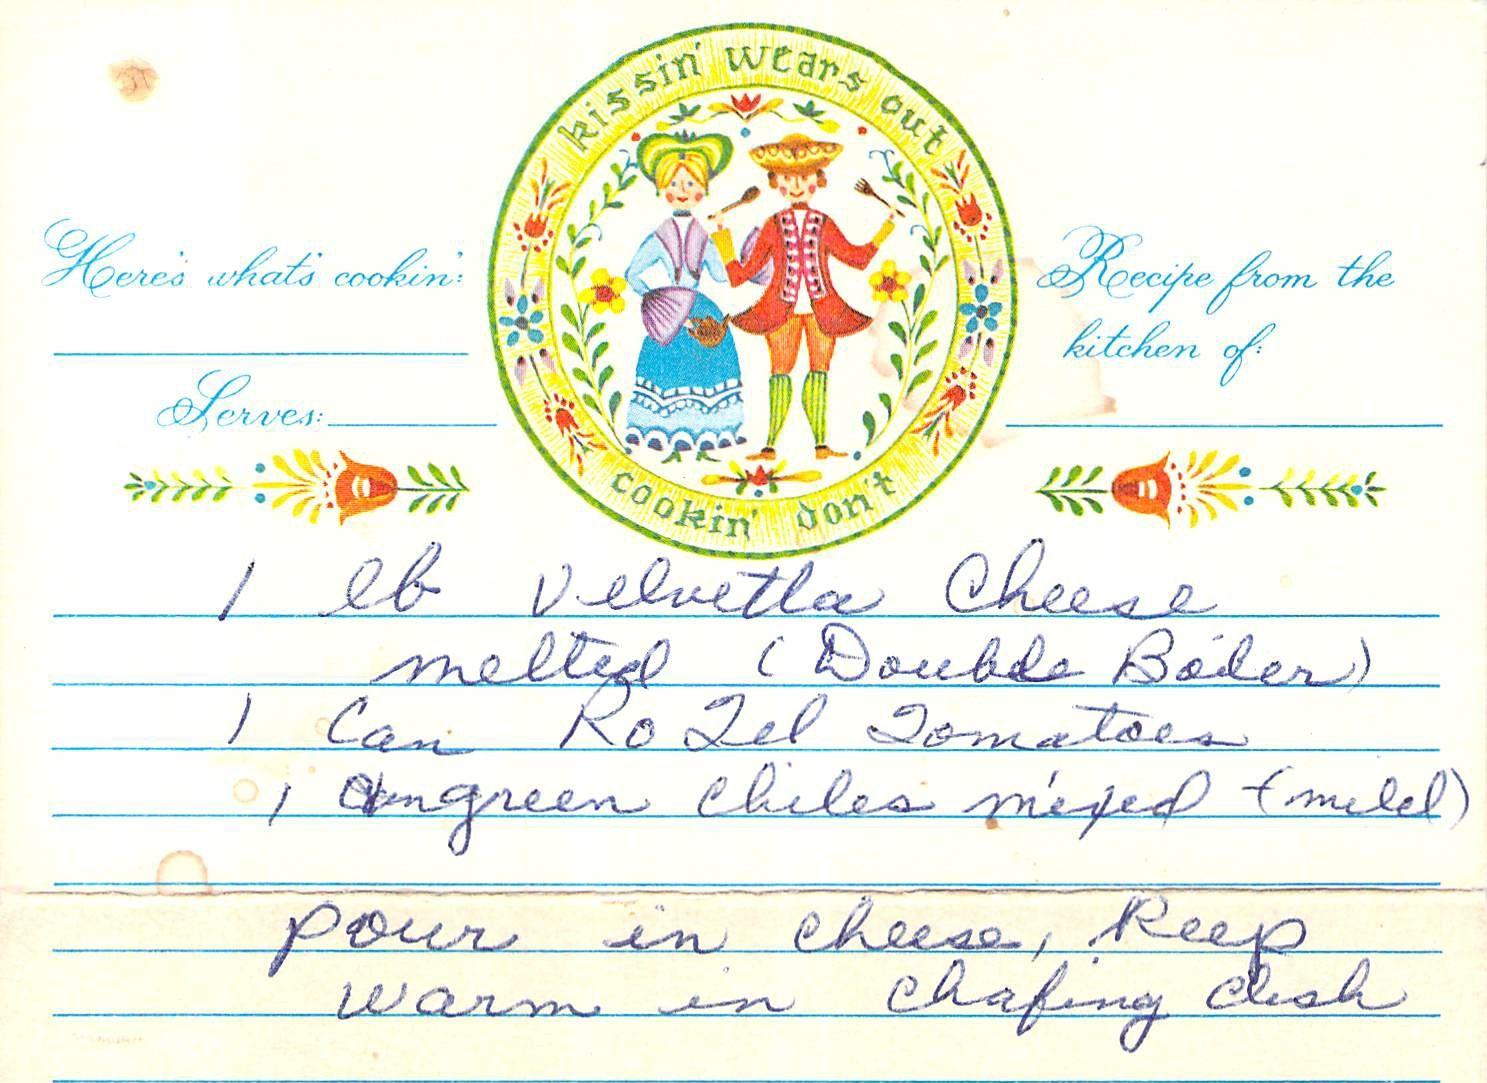 kissin' wears out
cookin' don't
Here's what's cookin':
Recipe from the
kitchen of:
Serves:
1 lb Velvetta Cheese
melted (Double Boiler)
1 Can Ro Tel Tomatoes
1 green chiles mixed (mild)
pour in cheese, Keep
warm in chafing dish